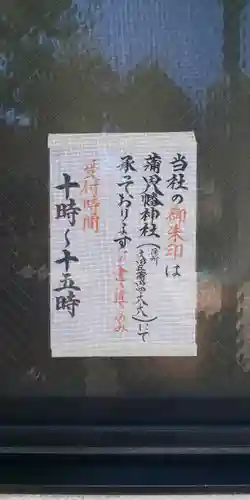 当社の御朱印は
蒲八幡神社(住所
にて
承っております
受付時間
十時〜十五時